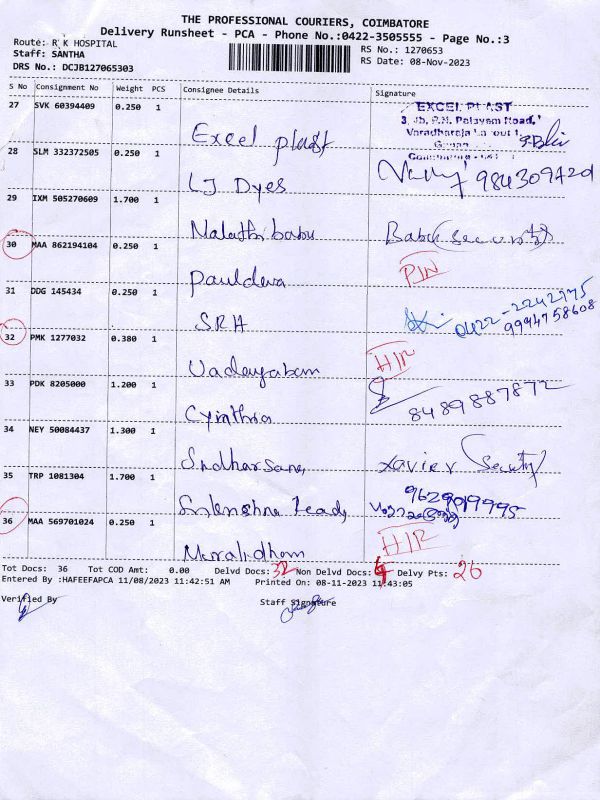 THE PROFESSIONAL COURIERS, COIMBATORE
Delivery Runsheet - PCA - Phone No.:0422-3505555 - Page No.:3
Route: R K HOSPITAL
RS No.: 1270653
Staff: SANTHA
RS Date: 08-Nov-2023
DRS No.: DCJB127065303
S No Consignment No Weight PCS Consignee Details Signature
27 SVK 60394409 0.250 1
EXCEL PLAST
3, Jb, P.N. Palayam Road,
Varadharaja Layout 1,
Excel plast
28 SLM 332372505 0.250 1
LJ Dyes
29 IXM 505270609 1.700 1
Malathi babu Babu (security)
30 MAA 862194104 0.250 1
Pauldeva PIN
31 DDG 145434 0.250 1
SRH 0422-2242975
9994758608
32 PMK 1277032 0.380 1
H/R
33 PDK 8205000 1.200 1
Cynthia 8489887872
34 NEY 50084437 1.300 1
Xavier (Security)
35 TRP 1081304 1.700 1
9629019995
36 MAA 569701024 0.250 1
Muralidharn H/R
Tot Docs: 36 Tot COD Amt: 0.00 Delvd Docs: 32 Non Delvd Docs: 4 Delvy Pts: 26
Entered By :HAFEEFAPCA 11/08/2023 11:42:51 AM Printed On: 08-11-2023 11:43:05
Verified By Staff Signature